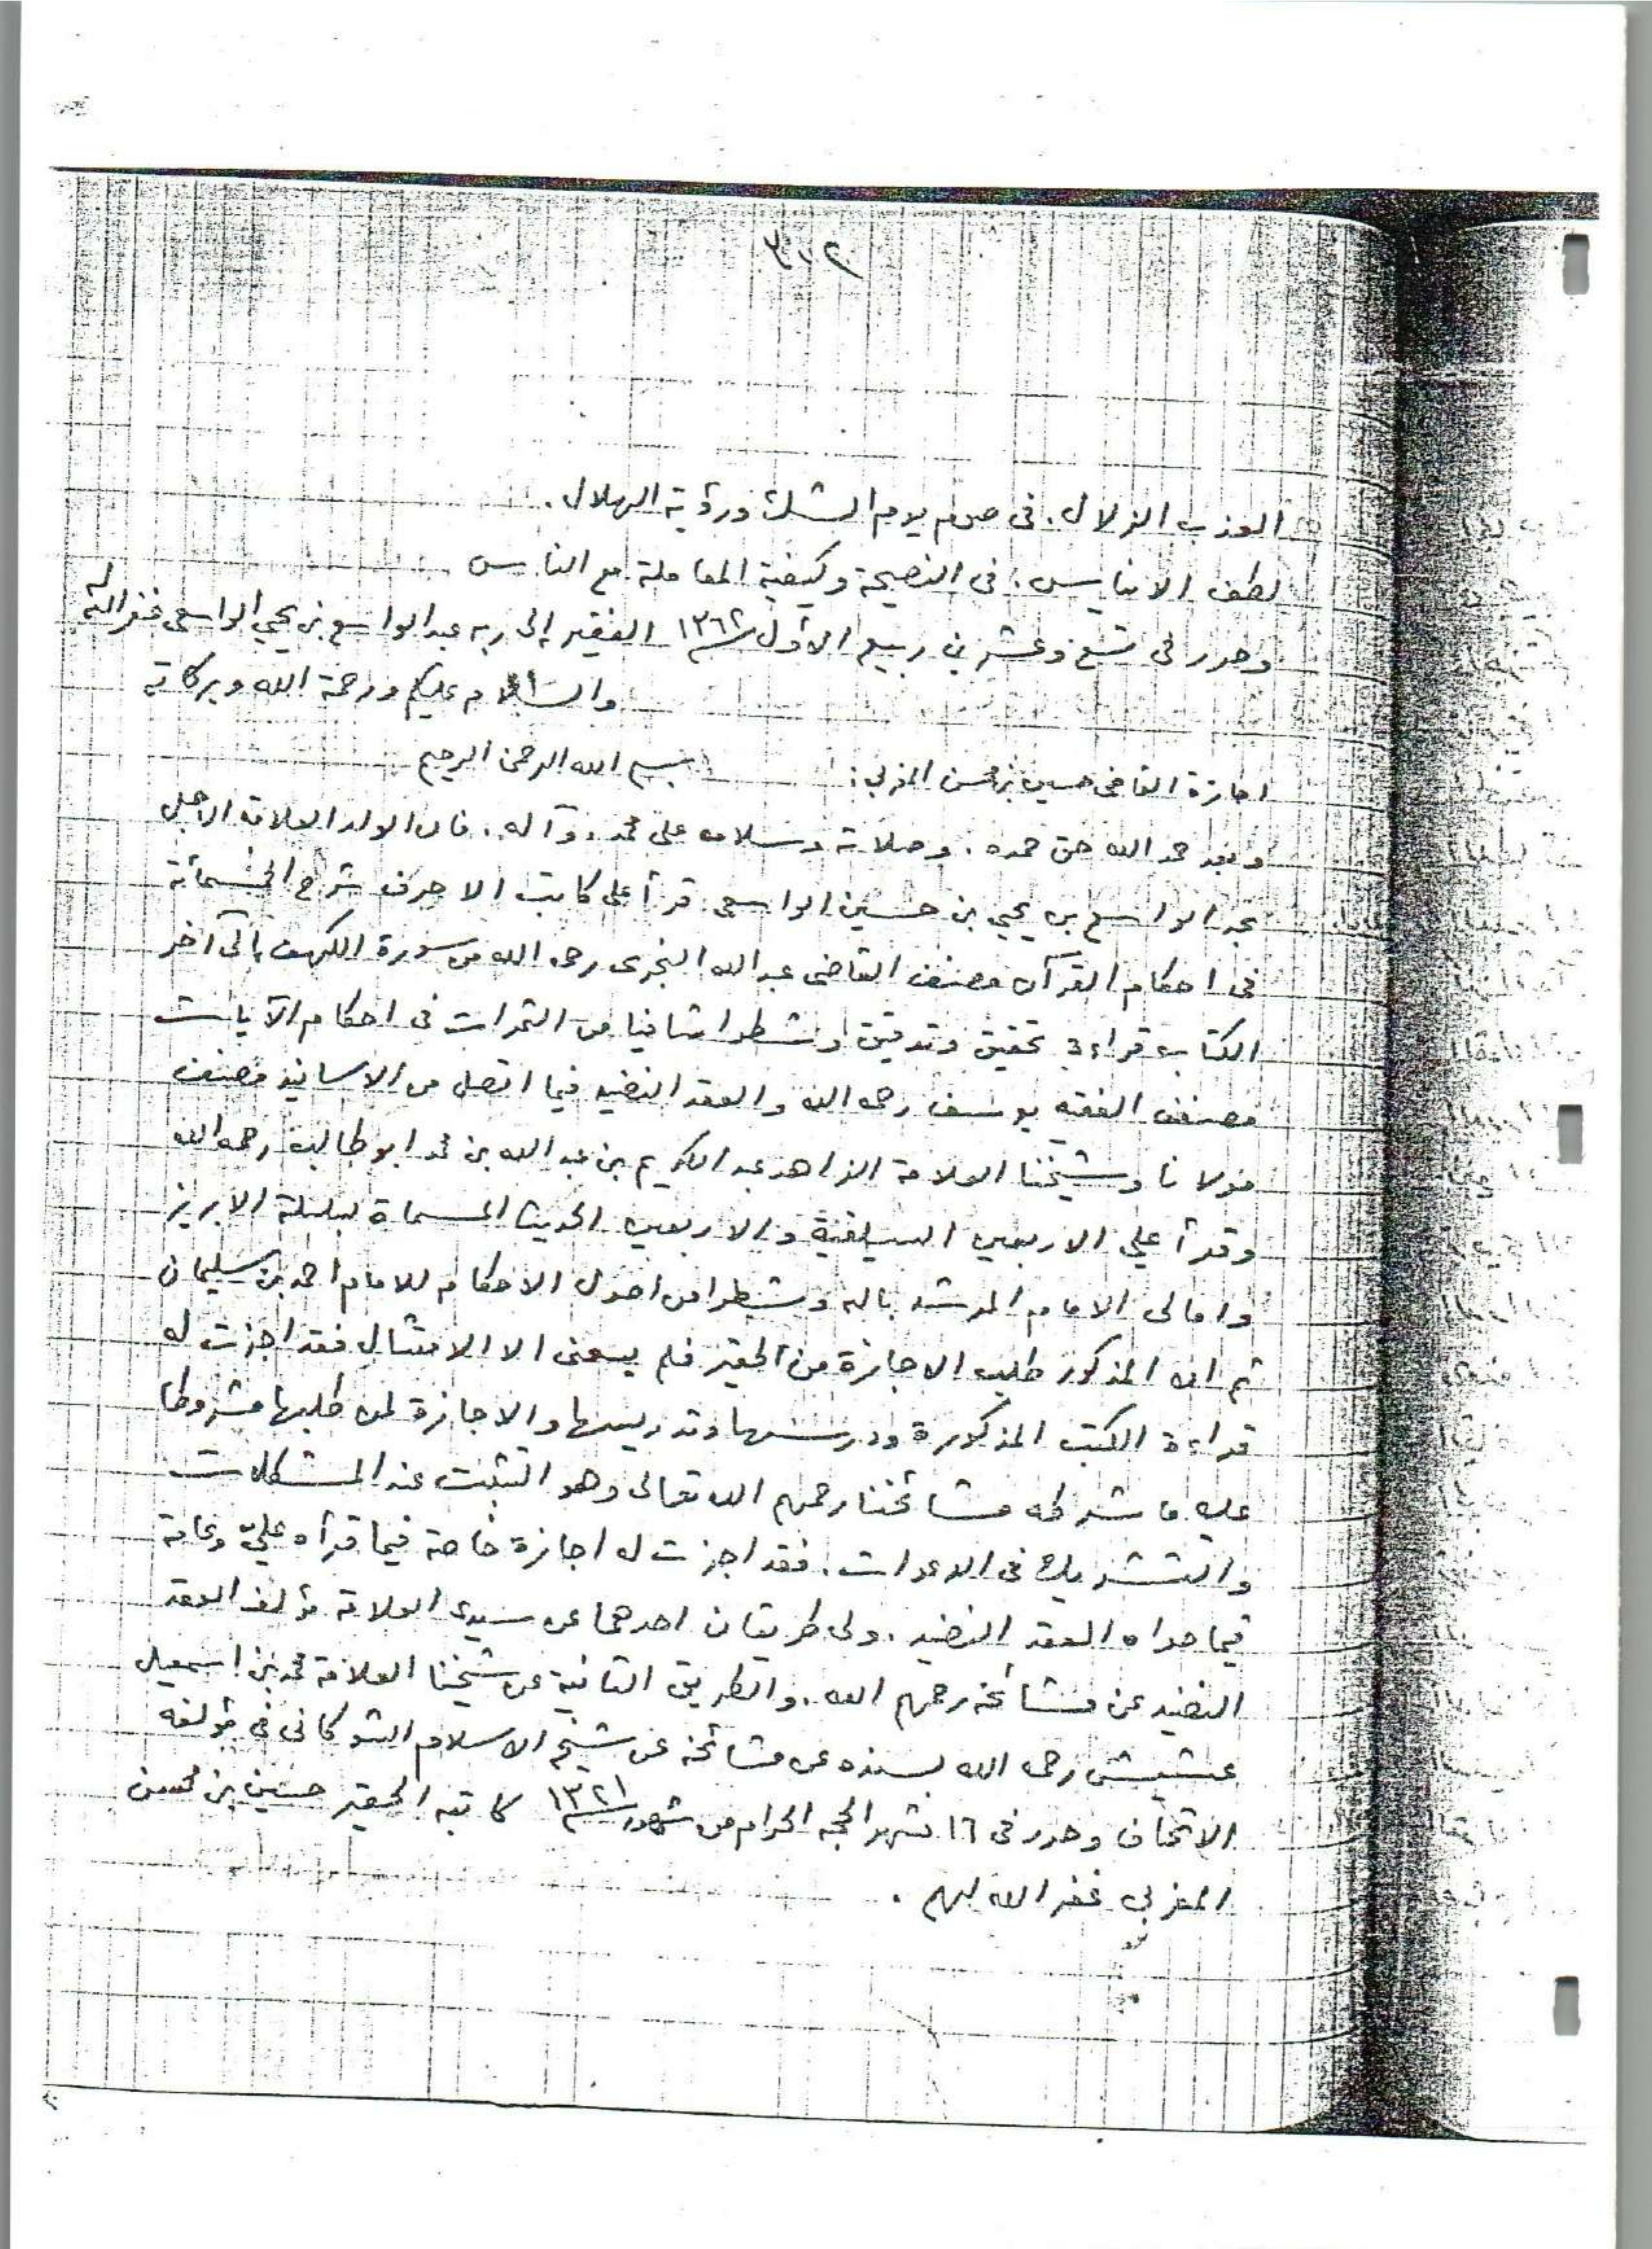 ٣٠٢
العذب الزلال. فى صوم يوم الشك ورؤية الهلال.
لطف الايناس. فى النصيحة وكيفية المعاملة مع الناس
وحرر فى تسع وعشرين ربيع الأول ١٣٦٢ الفقير إلى ربه عبدالواسع بن يحيي الواسعى غفر الله له
والسلام عليكم ورحمة الله وبركاته
اجازة القاضى حسين بن محسن المغربي: بسم الله الرحمن الرحيم
وبعد حمد الله حق حمده. وصلاته وسلامه على محمد وآله. فان الولد العلامة الاجل
عبد الواسع بن يحيي بن حسين الواسعى قرأ على كاتب الاحرف شرح الخمسمائة
فى احكام القرآن مصنف القاضى عبدالله النجرى رحمه الله من سورة الكهف إلى آخر
الكتاب قراءة تحقيق وتدقيق وشطرا شافيا من الثمرات فى احكام الآيات
مصنف الفقيه يوسف رحمه الله والعقد النضيد فيما اتصل من الاسانيد مصنف
مولانا وشيخنا العلامة الزاهد عبد الكريم بن عبد الله بن محمد ابو طالب رحمه الله
وقرأ علي الاربعين السيلقية والاربعين الحديث المسماة بسلسلة الابريز
وامالى الامام المرشد بالله وشطرا من اصول الاحكام للامام احمد بن سليمان
ثم ان المذكور طلب الاجازة من الحقير فلم يسعنى الا الامتثال فقد اجزت له
قراءة الكتب المذكورة ودرسها وتدريسها والاجازة لمن طلبها مشروطا
عليه ما شرطه مشائخنا رحمهم الله تعالى وهو التثبت عند المشكلات
والتشريك فى الدعوات. فقد اجزت له اجازة خاصة فيما قرأه عليّ وعامة
فيما حواه العقد النضيد. ولى طريقان احدهما عن سيدى العلامة مؤلف العقد
النضيد عن مشائخه رحمهم الله. والطريق الثانية عن شيخنا العلامة محمد بن اسمعيل
عشيش رحمه الله بسنده عن مشائخه عن شيخ الاسلام الشوكانى فى مؤلفه
الاتحاف وحرر فى ١٦ شهر الحجه الحرام من شهور ١٣٢١ كاتبه الحقير حسين بن محسن
المغربي غفر الله لهم.